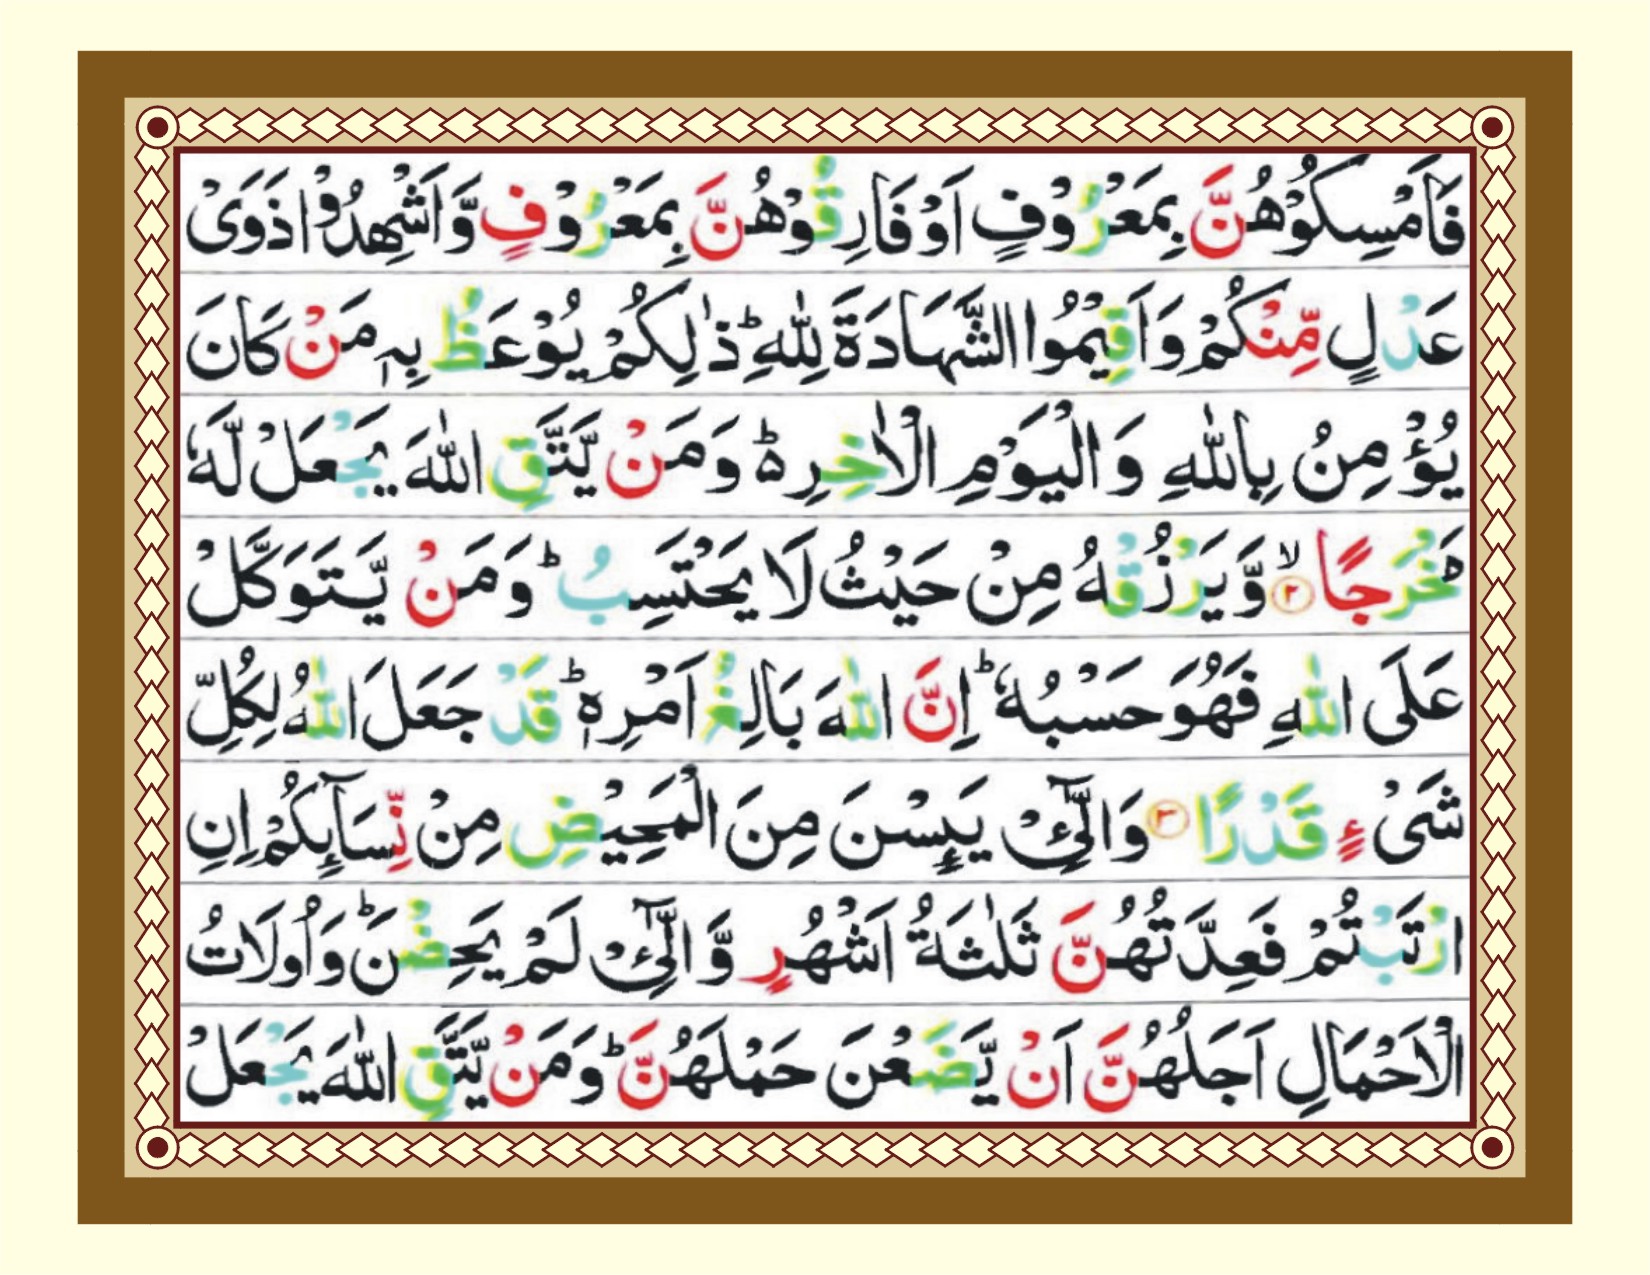 فَاَمْسِكُوْهُنَّ بِمَعْرُوْفٍ اَوْ فَارِقُوْهُنَّ بِمَعْرُوْفٍ وَّاَشْهِدُوْا ذَوَىْ
عَدْلٍ مِّنْكُمْ وَاَقِيْمُوا الشَّهَادَةَ لِلّٰهِ ؕ ذٰ لِكُمْ يُوْعَظُ بِهٖ مَنْ كَانَ
يُؤْمِنُ بِاللّٰهِ وَالْيَوْمِ الْاٰخِرِ ەؕ وَمَنْ يَّتَّقِ اللّٰهَ يَجْعَلْ لَّهٗ
مَخْرَجًا ۙ‏﴿۲﴾ وَّيَرْزُقْهُ مِنْ حَيْثُ لَا يَحْتَسِبُ‌ ؕ وَمَنْ يَّتَوَكَّلْ
عَلَى اللّٰهِ فَهُوَ حَسْبُهٗ ؕ اِنَّ اللّٰهَ بَالِغُ اَمْرِهٖ‌ ؕ قَدْ جَعَلَ اللّٰهُ لِكُلِّ
شَىْءٍ قَدْرًا ﴿۳﴾ وَالّٰٓـىِٔۡ يَٮِٕسْنَ مِنَ الْمَحِيْضِ مِنْ نِّسَآٮِٕكُمْ اِنِ
ارْتَبْتُمْ فَعِدَّتُهُنَّ ثَلٰثَةُ اَشْهُرٍ وَّالّٰٓـىِٔۡ لَمْ يَحِضْنَ‌ ؕ وَاُولَاتُ
الْاَحْمَالِ اَجَلُهُنَّ اَنْ يَّضَعْنَ حَمْلَهُنَّ‌ ؕ وَمَنْ يَّتَّقِ اللّٰهَ يَجْعَلْ